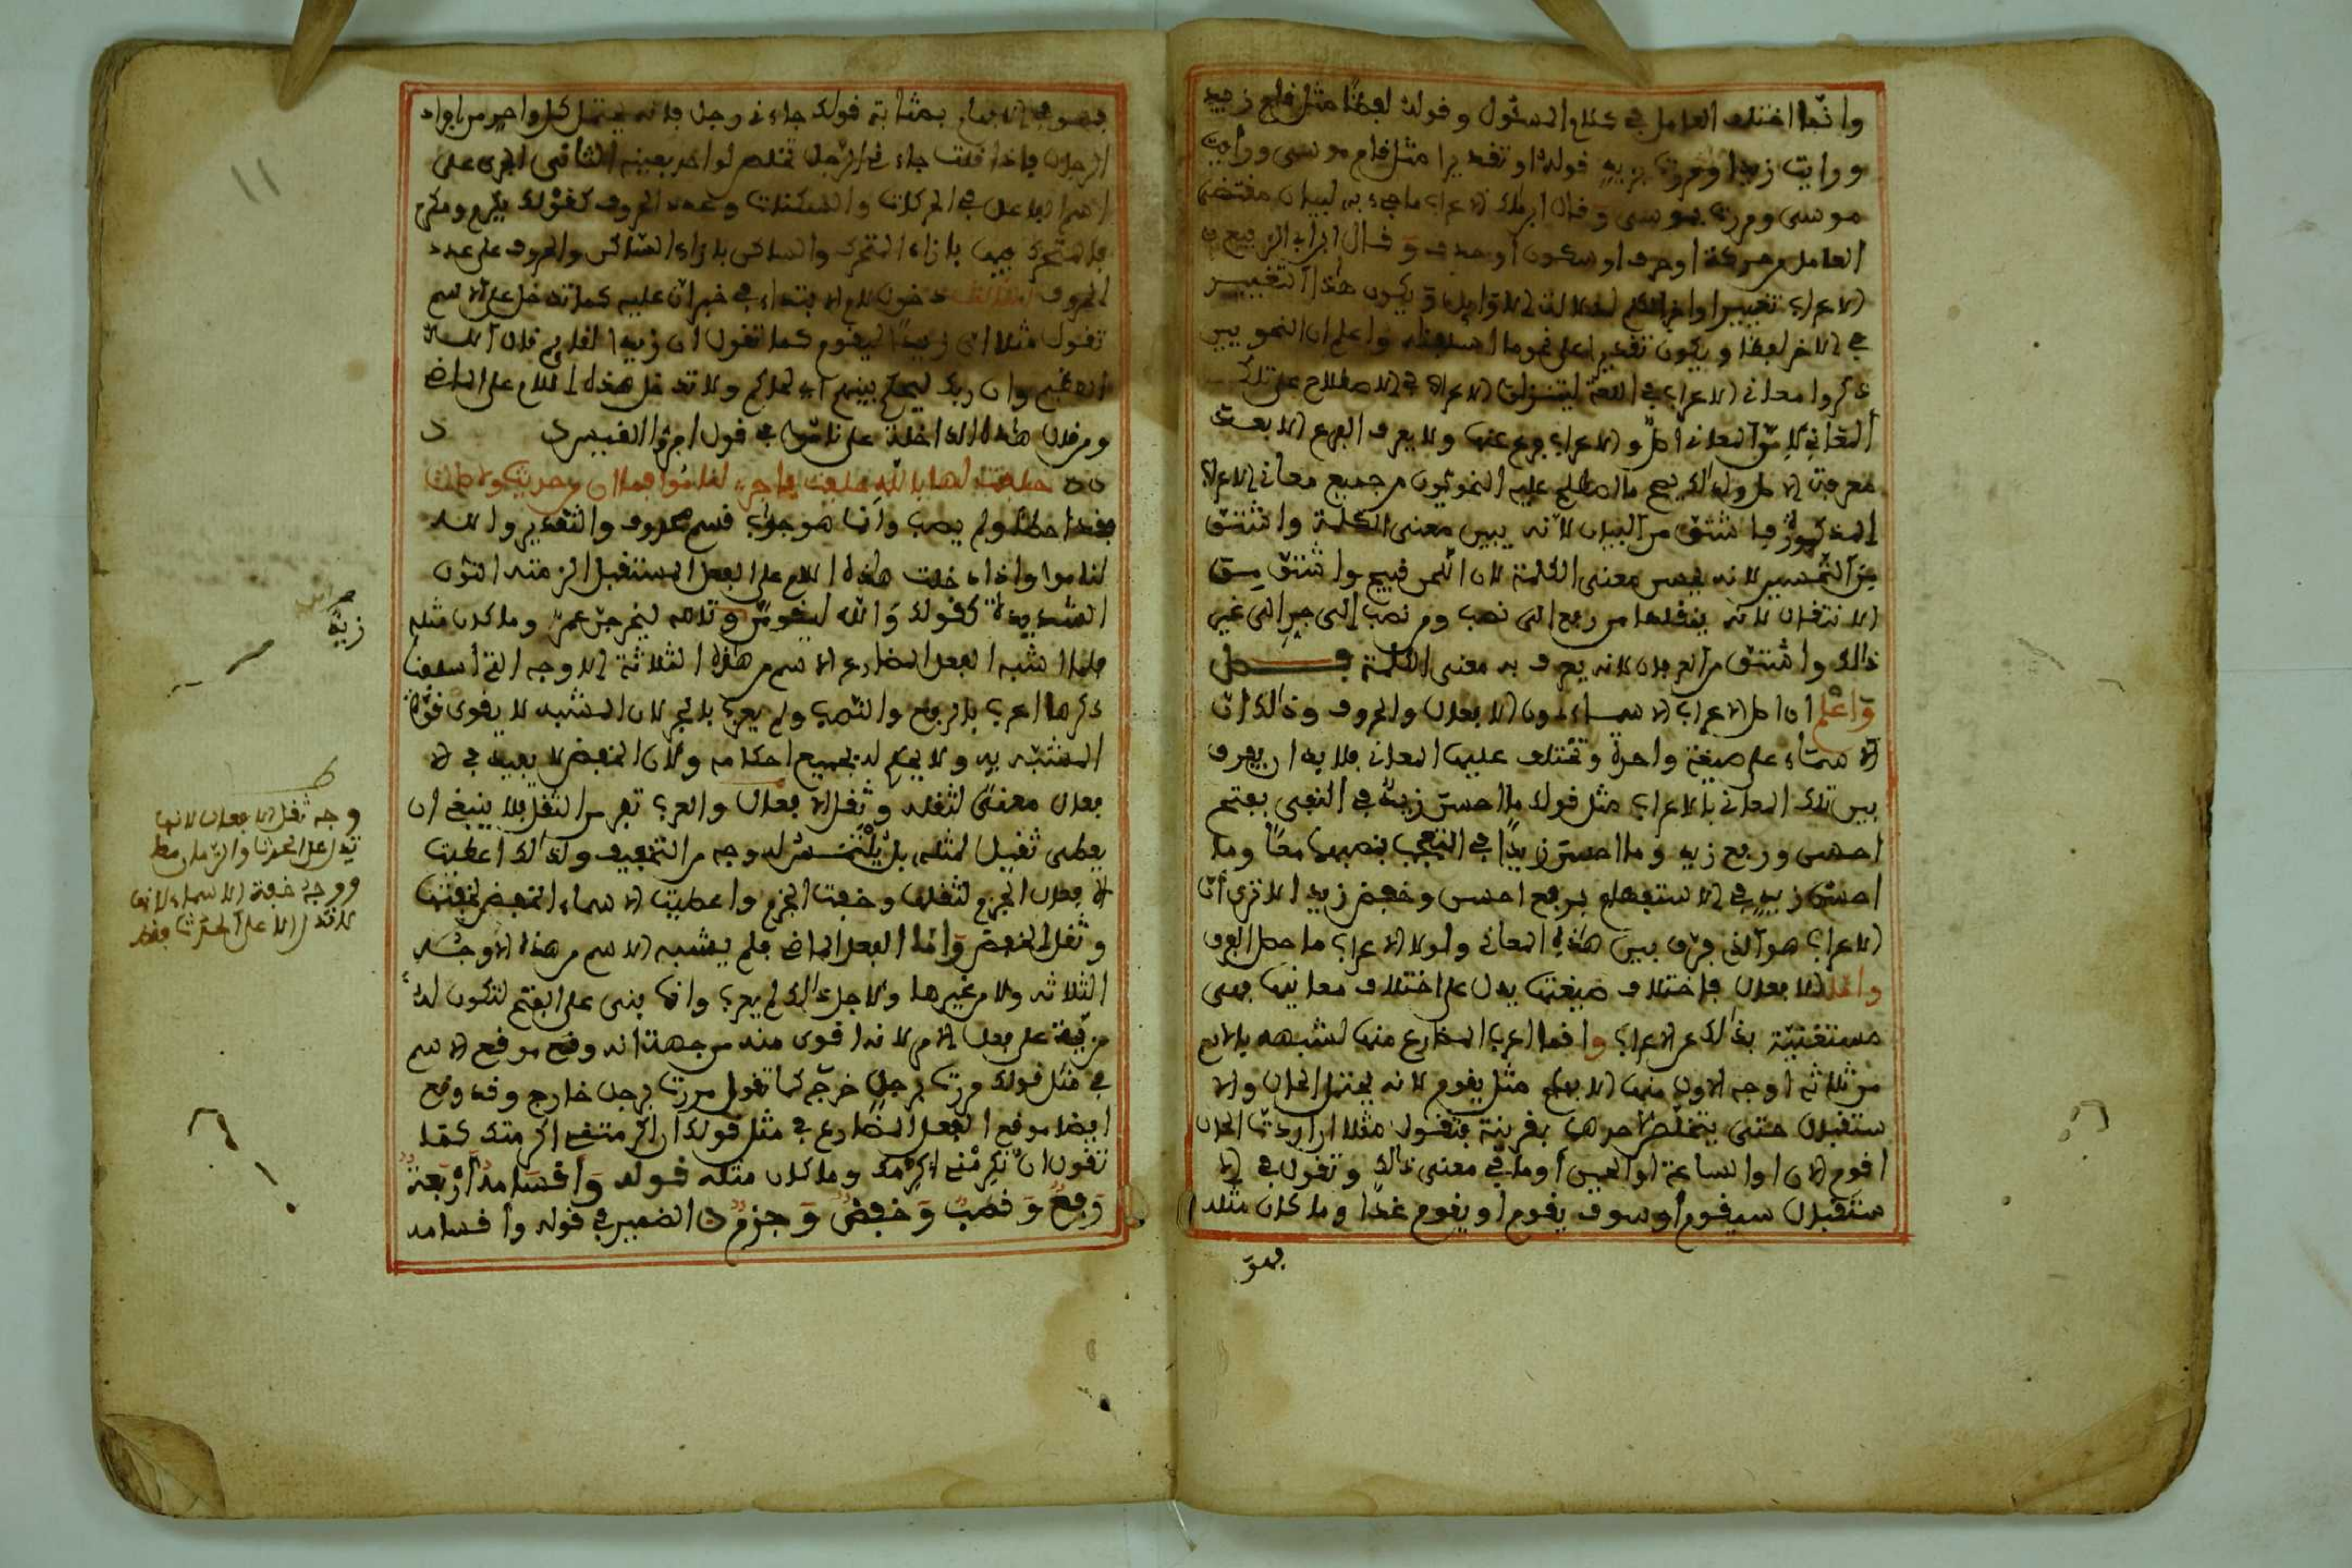 وانما اختلف العامل في كلام المسئول وقوله لفظا مثل قام زيد
ورايت زيدا ومررت بزيد قوله او تقديرا مثل قام موسى ورايت
موسى ومررت بموسى وقال ابن مالك الاعراب ما جيء به لبيان مقتضى
العامل من حركة او حرف او سكون او حذف وقال ابن ابي الربيع
الاعراب تغيير اواخر الكلم لدلالة الاوايل ويكون هذا التغيير
في الاخر لفظا ويكون تقديرا على نحو ما اسلفناه واعلم ان النحويين
ذكروا معاني الاعراب في اللغة الاعراب في الاصطلاح على تلك
المعاني لان المعاني اصل والاعراب فرع عنها ولا يعرف الفرع الا بعد
معرفة الاصل ولذلك يصح ما اصطلح عليه النحويون من جميع معاني الاعراب
المذكورة فاشتق من البيان لانه يبين معنى الكلمة واشتق
من التحسين لانه يحسن معنى الكلمة لان اللحن قبيح واشتق من
الانتقال لانه ينقلها من رفع الى نصب ومن نصب الى جر الى غير
ذالك واشتق من العرفان لانه يعرف به معنى الكلمة فصل
وَاعْلم ان اصل الاعراب الاسماء دون الافعال والحروف وذالك ان
الاسماء على صيغة واحدة وتختلف عليها المعاني فلا بد ان يعرف
بين تلك المعاني بالاعراب مثل قولك ما احسن زيد في النفي بفتح
احسن ورفع زيد وما احسن زيدا في التعجب بنصبهما معا وما
احسن زيد في الاستفهام برفع احسن وخفض زيد الا ترى ان
الاعراب هو الذي فرق بين هذه المعاني ولولا الاعراب ما حصل الفرق
واما الافعال فاختلاف صيغتها يدل على اختلاف معانيها فهي
مستغنية بذلك عن الاعراب وانما اعرب المضارع منها لشبهه بالاسم
من ثلاثة اوجه الاول منها الابهام مثل يقوم لانه يحتمل الحال والا
ستقبال حتى يتخلص لاحدهما بقرينة فتقول مثلا ان اردت الحال
اقوم الان او الساعة او الحين او ما في معنى ذالك وتقول في الا
ستقبال سيقوم او سوف يقوم او يقوم غدا وما كان مثله
فهو
فهو في الابهام بمثابة قولك جاءني رجل فانه يحتمل كل واحد من افراد
الرجال فاذا قلت جاءني الرجل تخلص لواحد بعينه الثاني الجري على
اسم الفاعل في الحركات والسكنات وعدد الحروف كقولك يكرم ومكرم
فالمتحرك فيها بازاء المتحرك والساكن بازاء الساكن والحروف على عدد
الحروف الثالث دخول لام الابتداء في خبر ان عليه كما تدخل على الاسم
تقول مثلا ان زيدا ليقوم كما تقول ان زيدا لقايم قال الله
العظيم وان ربك ليحكم بينهم اي لحاكم ولا تدخل هذه اللام على الماضي
ومن قال هذه الداخلة على ناموا في قول امرؤ القيس
حلفت لها بالله حلفة فاجر لناموا فما ان من حديث ولا صال
فقد اخطا ولم يصب وانما هو جواب قسم محذوف والتقدير والله
لناموا واذا دخلت هذه اللام على الفعل المستقبل الزمته النون
الشديدة كقولك والله ليقومن وتالله ليخرجن عمر وما كان مثله
فلما اشبه الفعل المضارع الاسم من هذه الثلاثة الاوجه التي اسلفنا
ذكرها اعرب بالرفع والنصب ولم يعرب بالجر لان المشبه لا يقوى قوة
المشبه به ولا يحكم له بجميع احكامه ولان الخفض لا يفيد في الا
فعال معنى لثقله وثقل الافعال والعرب تفر من الثقل فلا ينبغي ان
يعطى ثقيل لمثله بل يلتمس له وجه من التخفيف ولذلك اعطيت
الافعال الجزم لثقلها وخفة الجزم واعطيت الاسماء الخفض لخفتها
وثقل الخفض وَاما الفعل الماضي فلم يشبه الاسم من هذه الاوجه
الثلاثة ولا من غيرها ولاجل ذالك لم يعرب وانما بني على الفتح لتكون له
مزية على فعل الامر لانه اقوى منه من جهة انه وقع موقع الاسم
في مثل قولك مررت برجل خرج كما تقول مررت برجل خارج وقد وقع
ايضا موقع الفعل المضارع في مثل قولك ان اكرمتني اكرمتك كما
تقول ان تكرمني اكرمك وما كان مثله قوله وَأقسَامه أرْبَعَة
رَفعٌ وَنصبٌ وَخفضٌ وَجزمٌ الضمير في قوله واقسامه
زيد
وجه ثقل الافعال لانها
تدل على الحدث والزمان معا
ووجه خفة الاسماء لانها
لا تدل الا على الحدث فقط
١١